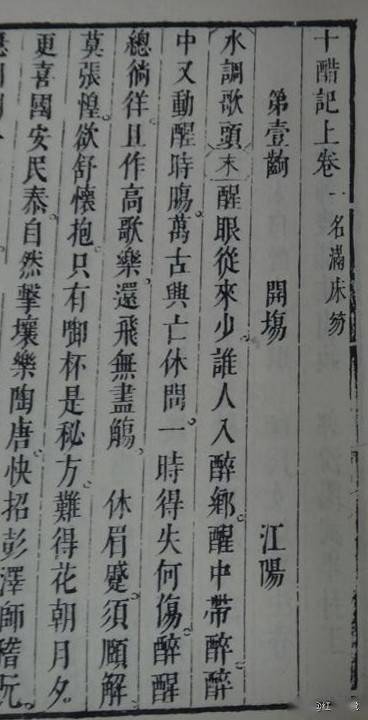 十醋記上卷 一名滿床笏
第壹齣 開塲 江陽
水調歌頭 末 醒眼從來少。誰人入醉鄉。醒中帶醉醉
中又動醒時腸。萬古興亡休問。一時得失何傷。醉醒
總徜徉。且作高歌樂。還飛無盡觴。 休眉蹙。須頤解
莫張惶。欲舒懷抱。只有啣杯是秘方。難得花朝月夕。
更喜國安民泰。自然擊壤樂陶唐。快招彭澤師嵇阮。